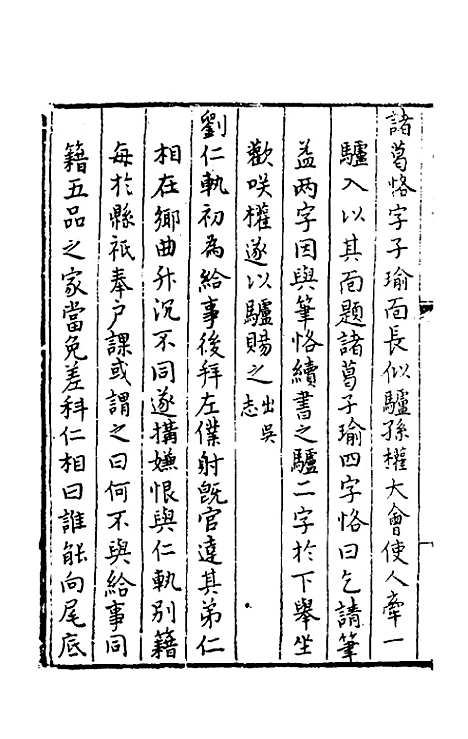 諸葛恪字子瑜面長似驢孫權大會使人牽一
驢入以其面題諸葛子瑜四字恪曰乞請筆
益两字因與筆恪續書之驢二字於下舉坐
歡咲權遂以驢賜之出吳志
劉仁軌初為給事後拜左僕射旣官達其弟仁
相在鄉曲升沉不同遂搆嫌恨與仁軌別籍
每於縣祇奉户課或謂之曰何不與給事同
籍五品之家當免差科仁相曰誰能向尾底